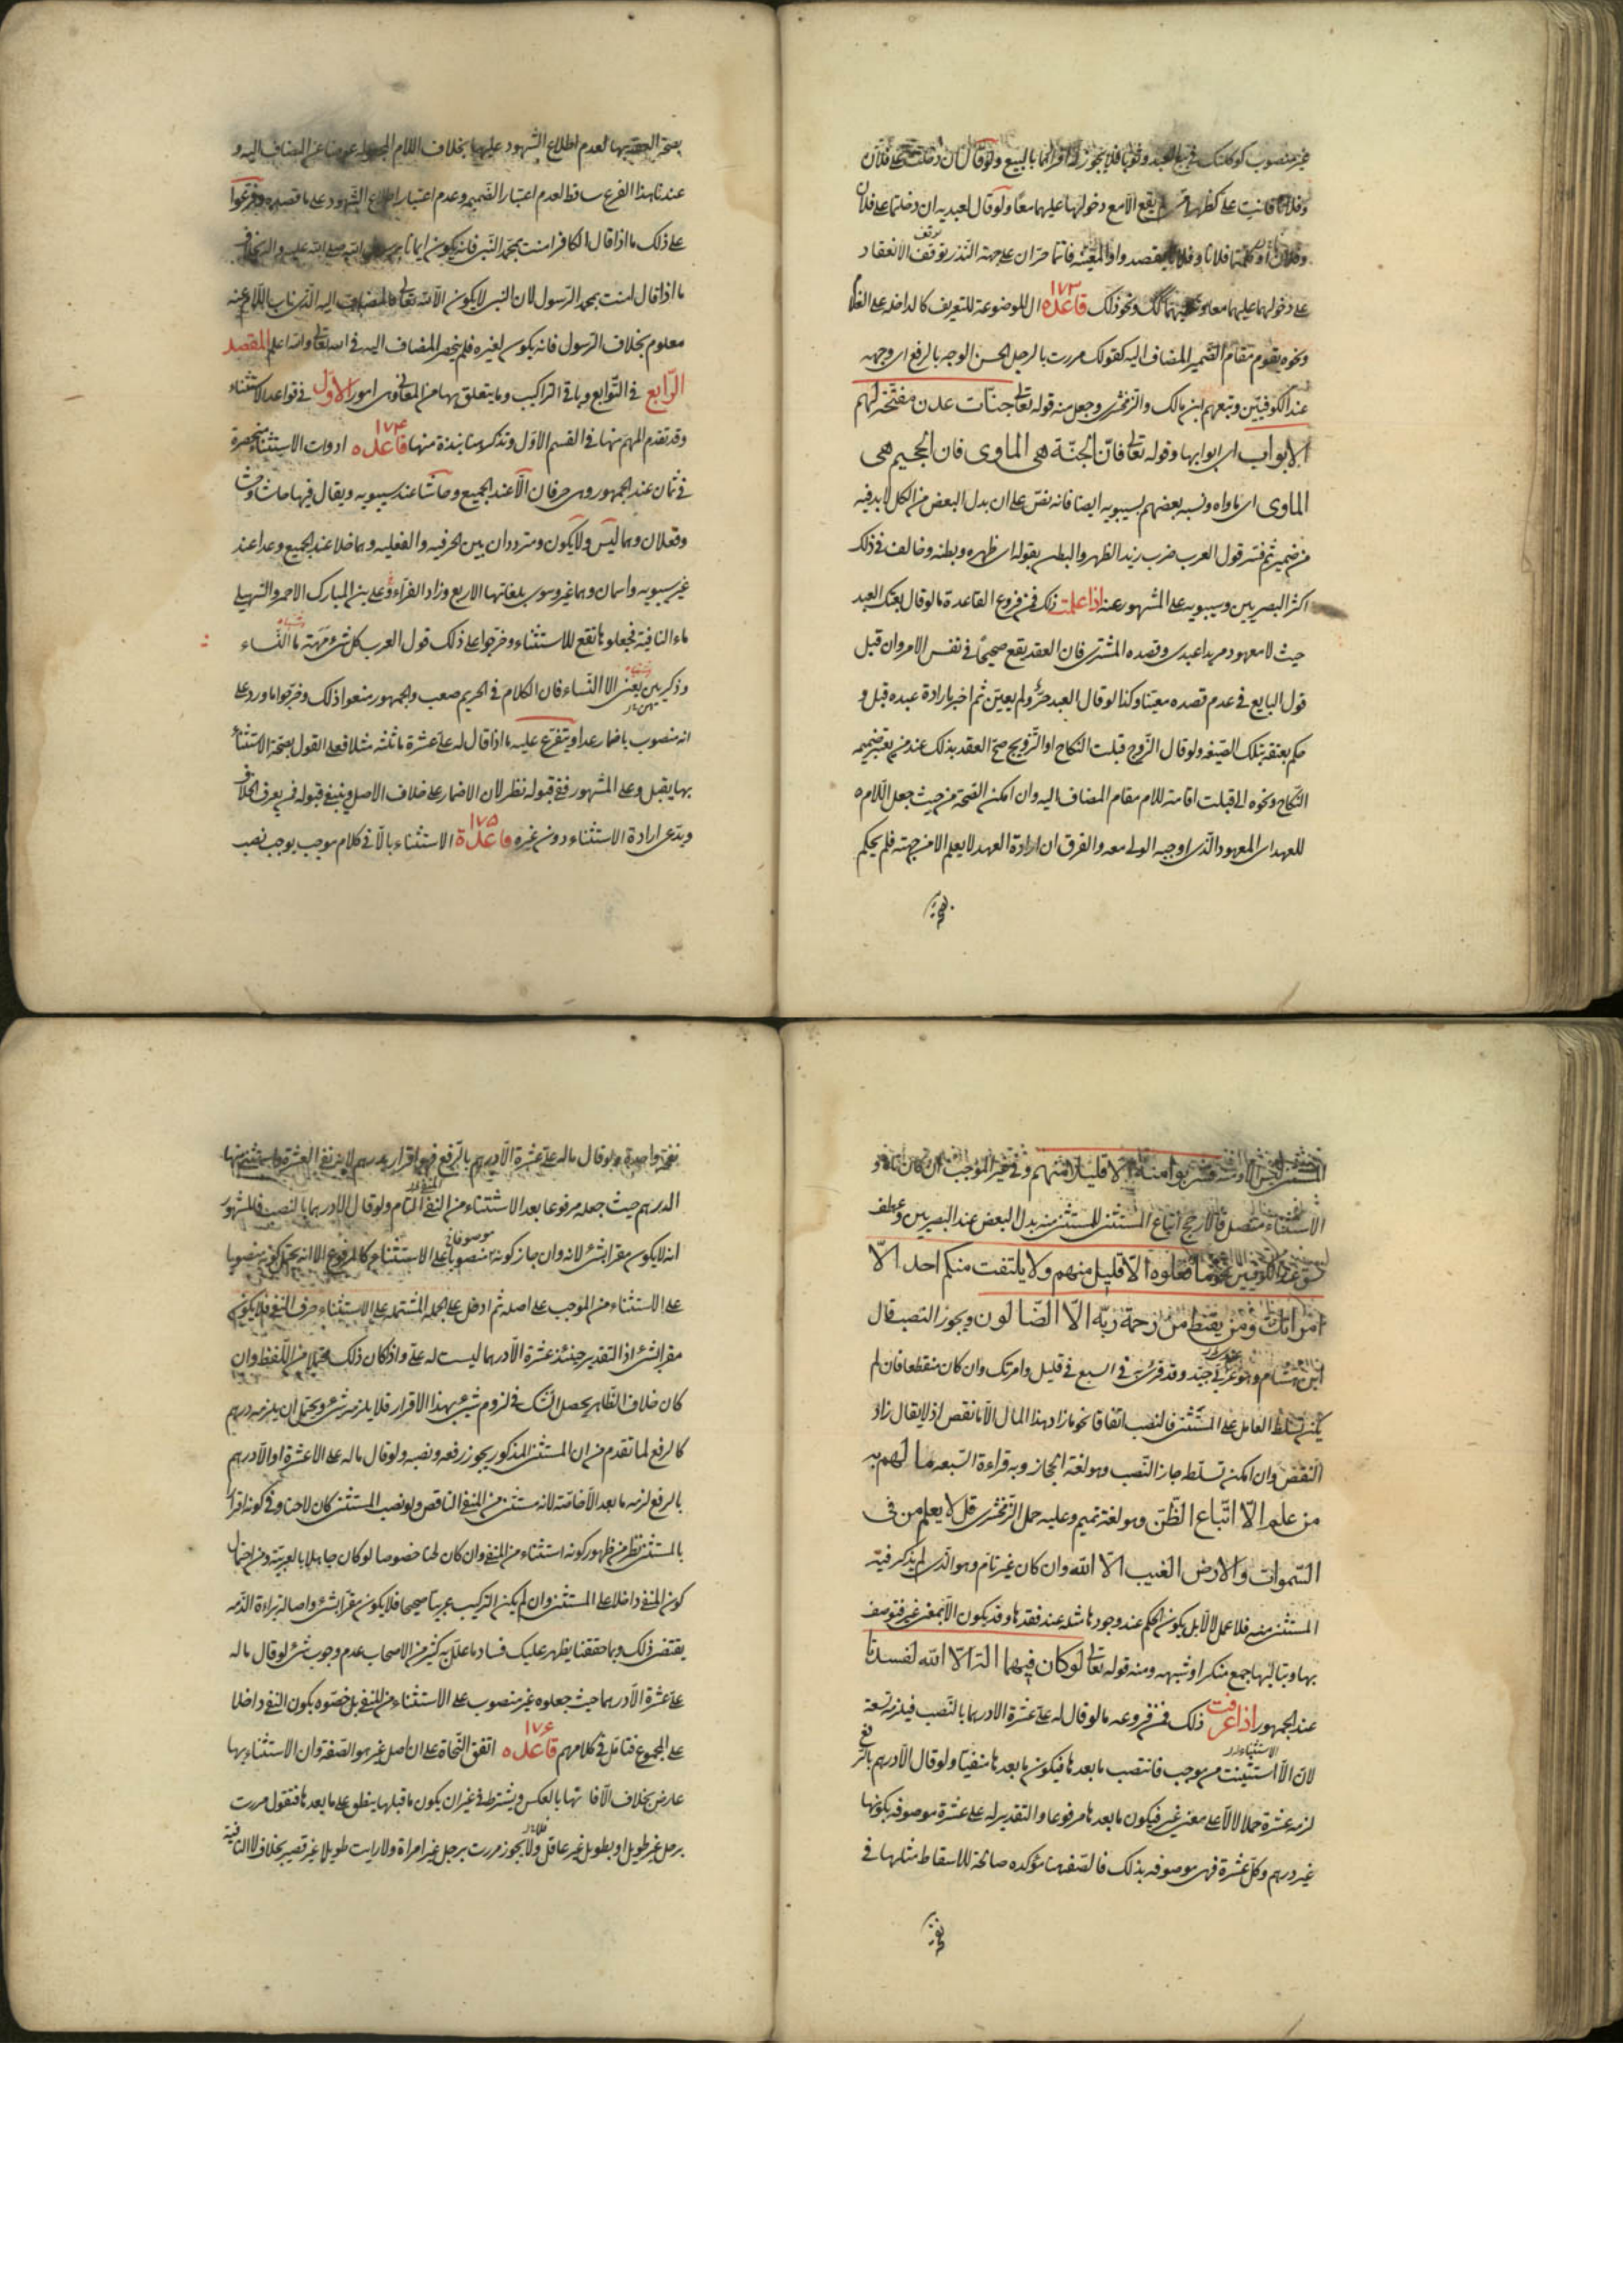 غير منصوب كوكلتك في بيع العبد وثوبا فلا يجوز له افرادهما بالبيع ولو قال ان دخلت على فلان
وفلانا فانت على كظهر امي لم يقع الا مع دخولها عليهما معا ولو قال لعبديه ان دخلتما على فلان
وفلان او كلمتما فلانا وفلانا بقصد واو المعية فانتما حران على جهة النذر توقف الانعقاد
على دخولهما عليهما معا ونحو ذلك قاعدة ١٧٣ ال الموضوعة للتعريف كالداخلة على الغلام
ونحوه يقوم مقام الضمير المضاف اليه كقولك مررت بالرجل الحسن الوجه بالرفع اي وجهه
عند الكوفيين وتبعهم ابن مالك والزمخشري وجعل منه قوله تعالى جنات عدن مفتحة لهم
الابواب اي ابوابها وقوله تعالى فان الجنة هي الماوى فان الجحيم هي
الماوى اي ماواه ونسبه بعضهم لسيبويه ايضا فانه نص على ان بدل البعض من الكل لا بد فيه
من ضمير ثم فسر قول العرب ضرب زيد الظهر والبطن بقوله اي ظهره وبطنه وخالف في ذلك
اكثر البصريين وسيبويه على المشهور عنه اذا علمت ذلك فمن فروع القاعدة ما لو قال بعتك العبد
حيث لا معهود مريدا عبدي وقصده المشتري فان العقد يقع صحيحا في نفس الامر وان قبل
قول البايع في عدم قصده معينا وكذا لو قال العبد حر ولم يعين ثم اخبر بارادة عبده قبل و
حكم بعتقه بتلك الصيغة ولو قال الزوج قبلت النكاح او التزويج صح العقد بذلك عند من يعتبر ضميمه
النكاح ونحوه الى قبلت اقامة للام مقام المضاف اليه وان امكن الصحة من حيث جعل اللام
للعهد اي المعهود الذي اوجبه الولي معه والفرق ان ارادة العهد لا يعلم الا من جهته فلم يحكم
بصحة العقد بها لعدم اطلاع الشهود عليها بخلاف اللام المجعولة عوضا عن المضاف اليه و
عندنا هذا الفرع ساقط لعدم اعتبار الضميمة وعدم اعتبار اطلاع الشهود على ما قصده وفرعوا
على ذلك ما اذا قال الكافر امنت بمحمد النبي فانه يكون ايمانا برسول الله صلى الله عليه واله بخلاف
ما اذا قال امنت بمحمد الرسول لان النبي لا يكون الا لله تعالى فالمضاف اليه الذي ناب اللام عنه
معلوم بخلاف الرسول فانه يكون لغيره فلم ينحصر المضاف اليه في الله تعالى والله اعلم المقصد
الرابع في التوابع وباقي التراكيب وما يتعلق بها من المعاني وهي امور الاول في قواعد الاستثناء
وقد تقدم المهم منها في القسم الاول ونذكر هنا نبذة منها قاعدة ١٧٤ ادوات الاستثناء منحصرة
في ثمان عند الجمهور وهي حرفان الا عند الجميع وحاشا عند سيبويه ويقال فيها حاش وحشا
وفعلان وهما ليس ولا يكون ومترددان بين الحرفية والفعلية وهما خلا عند الجميع وعدا عند
غير سيبويه واسمان وهما غير وسوى بلغاتها الاربع وزاد الفراء وعلي بن المبارك الاحمر والسهيلي
ماء النافية فجعلوها تقع للاستثناء وخرجوا على ذلك قول العرب كل شيء مهة ما النساء
وذكرهن يعني الا النساء فان الكلام في الحريم صعب والجمهور منعوا ذلك وخرجوا ما ورد على
انه منصوب باضمار عدا ويتفرع عليه ما اذا قال له علي عشرة ما ثلثة مثلا فعلى القول بصحة الاستثناء
بها يقبل وعلى المشهور ففي قبوله نظر لان الاضمار على خلاف الاصل وينبغي قبوله فمن يعرف الخلاف
ويدعى ارادة الاستثناء دون غيره قاعدة ١٧٥ الاستثناء بالا في كلام موجب يوجب نصب
المستثنى فشربوا منه الا قليلا منهم وفي غير الموجب ان كان تاما و
الاستثناء متصل فالارجح اتباع المستثنى للمستثنى منه بدل البعض عند البصريين وعطف
نسق عند الكوفيين نحو ما فعلوه الا قليل منهم ولا يلتفت منكم احد الا
امراتك ومن يقنط من رحمة ربه الا الضالون ويجوز النصب قال
ابن هشام وهو عربي جيد وقد قرئ به في السبع في قليل وامرتك وان كان منقطعا فان لم
يمكن تسلط العامل على المستثنى فالنصب اتفاقا نحو ما زاد هذا المال الا ما نقص اذ لا يقال زاد
النقص وان امكن تسلط جاز النصب وهو لغة الحجاز وبه قراءة السبعة ما لهم به
من علم الا اتباع الظن وهو لغة تميم وعليه حمل الزمخشري قل لا يعلم من في
السموات والارض الغيب الا الله وان كان غير تام وهو الذي لم يذكر فيه
المستثنى منه فلا عمل لالا بل يكون الحكم عند وجودها مثله عند فقدها وقد يكون الا بمعنى غير فتوصف
بها وبتاليها جمع منكر او شبهه ومنه قوله تعالى لو كان فيهما الهة الا الله لفسدتا
عند الجمهور اذا عرفت ذلك فمن فروعه ما لو قال له علي عشرة الا درهما بالنصب فيلزمه تسعة
لان الا استثنيت من موجب فانتصب ما بعدها فيكون ما بعدها منفيا ولو قال الا درهم بالرفع
لزمه عشرة حملا لالا على معنى غير فيكون ما بعدها مرفوعا والتقدير له علي عشرة موصوفة بكونها
غير درهم وكل عشرة فهي موصوفة بذلك فالصفة هنا مؤكدة صالحة للاسقاط مثلها في
نفخة واحدة ولو قال ماله علي عشرة الا درهم بالرفع فهو اقرار بدرهم لانه نفى العشرة واستثنى منها
الدرهم حيث جعله مرفوعا بعد الاستثناء من النفي التام ولو قال الا درهما بالنصب فالمشهور
انه لا يكون مقرا بشيء لانه وان جاز كونه منصوبا على الاستثناء كالمرفوع الا انه يحتمل كونه منصوبا
على الاستثناء من الموجب على اصله ثم ادخل على الجملة المشتملة على الاستثناء حرف النفي فلا يكون
مقرا بشيء اذ التقدير حينئذ عشرة الا درهما ليست له علي واذ كان ذلك محتملا من اللفظ وان
كان خلاف الظاهر يحصل الشك في لزوم شيء بهذا الاقرار فلا يلزمه شيء ويحتمل ان يلزمه درهم
كالرفع لما تقدم من ان المستثنى المذكور يجوز رفعه ونصبه ولو قال ماله علي الا عشرة او الا درهم
بالرفع لزمه ما بعد الا خاصة لانه مستثنى من المنفي الناقص ولو نصب المستثنى كان لاحنا وفي كونه اقرارا
بالمستثنى نظر من ظهور كونه استثناء من المنفي وان كان لحنا خصوصا لو كان جاهلا بالعربية ومن احتمال
كون المنفي داخلا على المستثنى وان لم يكن التركيب عربيا صحيحا فلا يكون مقرا بشيء واصالة براءة الذمة
يقتضي ذلك وبما حققنا يظهر عليك فساد ما علل به كثير من الاصحاب عدم وجوب شيء لو قال ماله
علي عشرة الا درهما حيث جعلوه غير منصوب على الاستثناء من المنفي بل خصوه بكون النفي داخلا
على المجموع فتامل في كلامهم قاعدة ١٧٦ اتفق النحاة على ان اصل غير هو الصفة وان الاستثناء بها
عارض بخلاف الا فانها بالعكس ويشترط في غير ان يكون ما قبلها ينطلق على ما بعدها فتقول مررت
برجل غير طويل او بطويل غير عاقل ولا يجوز مررت برجل غير امراة ولا رايت طويلا غير قصير بخلاف لا النافية